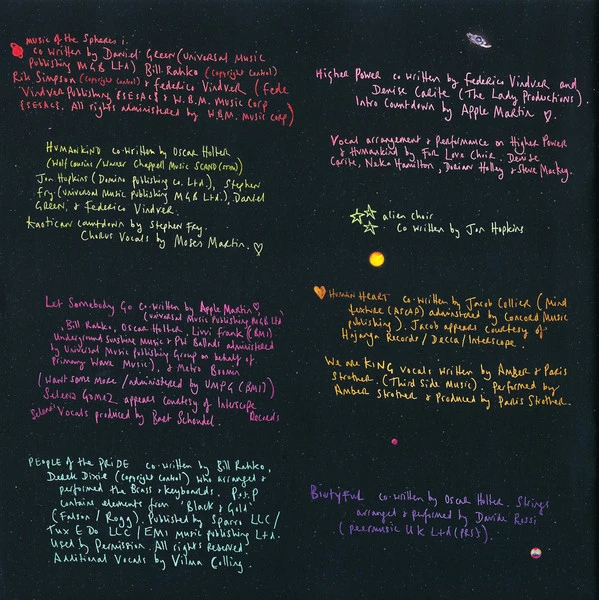 music of the Spheres i.
co written by Daniel Green (Universal Music
Publishing MGB Ltd) Bill Rahko (copyright control)
Rik Simpson (copyright control) & Federico Vindver (Fede
Vindver Publishing (SESAC) & W.B.M. Music Corp
(SESAC). All rights administered by W.B.M. Music Corp)
HUMANKIND co-written by OSCAR Holter
(Wolf Cousins / Warner Chappell Music SCAND (STIM)
Jon Hopkins (Domino Publishing Co. Ltd.), Stephen
Fry (Universal Music Publishing MGB Ltd.), Daniel
GREEN, & Federico Vindver.
Kaotican countdown by Stephen Fry.
Chorus Vocals by Moses Martin. ♡
Let Somebody Go co-written by Apple Martin ♡
(Universal Music Publishing MGB Ltd)
, Bill Rahko, Oscar Holter, Livvi Frank (BMI)
Underground Sunshine Music & PW Ballads administered
by Universal Music Publishing Group on behalf of
Primary Wave Music), & Metro Boomin
(Want some more / administered by UMPG (BMI))
Selena Gomez appears courtesy of Interscope
Records
Selena's Vocals produced by Bart Schoudel.
PEOPLE of the PRIDE co-written by Bill Rahko,
Derek Dixie (copyright control) who arranged &
performed the Brass & Keyboards. P.o.t.P
contains elements from 'Black & Gold'
(Falson / Rogg). Published by Sparro LLC /
Tux E Do LLC / EMI Music Publishing Ltd.
Used by Permission. All rights Reserved
Additional Vocals by Vilma Colling.
Higher Power co written by Federico Vindver and
Denise Carite (The Lady Productions).
Intro Countdown by Apple Martin ♡.
Vocal arrangement & Performance on Higher Power
& Humankind by For Love Choir. Denise
Carite, Neka Hamilton, Dorian Holley & Steve Mackey.
☆☆☆ alien choir
co written by Jon Hopkins
HUMAN HEART co-written by Jacob Collier (Mind
texture (ASCAP) administered by Concord Music
publishing). Jacob appears courtesy of
Hajanga Records / Decca / Interscope.
We are KING vocals written by Amber & Paris
Strother. (Third Side Music). performed by
Amber Strother & Produced by Paris Strother.
Biutyful co-written by Oscar Holter. Strings
arranged & performed by Davide Rossi
(peermusic UK Ltd (PRS)).